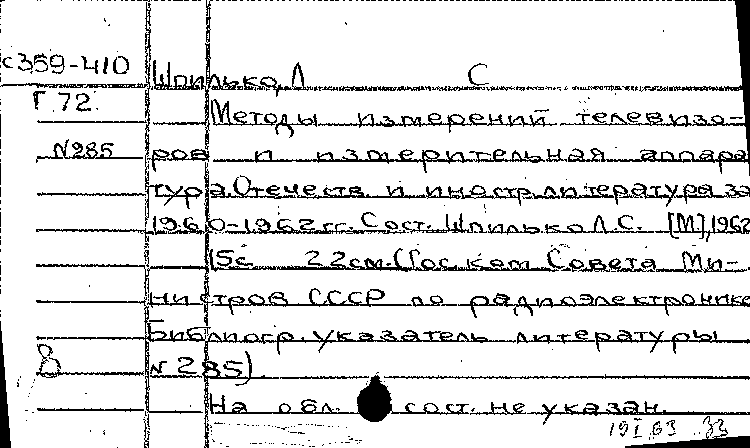 с359-410
Шпилько, Л С
Г.72.
Методы измерений телевизо-
N285
ров и измерительная аппара
тура. Отечеств. и иностр. литература за
1960-1962 гг. Сост. Шпилько Л.С. [М], 1962
15с 22см. (Гос ком Совета Ми-
нистров СССР по радиоэлектронике
Библиогр. указатель литературы
N 285)
В
На обл. сост. не указан.
19 I 63 33